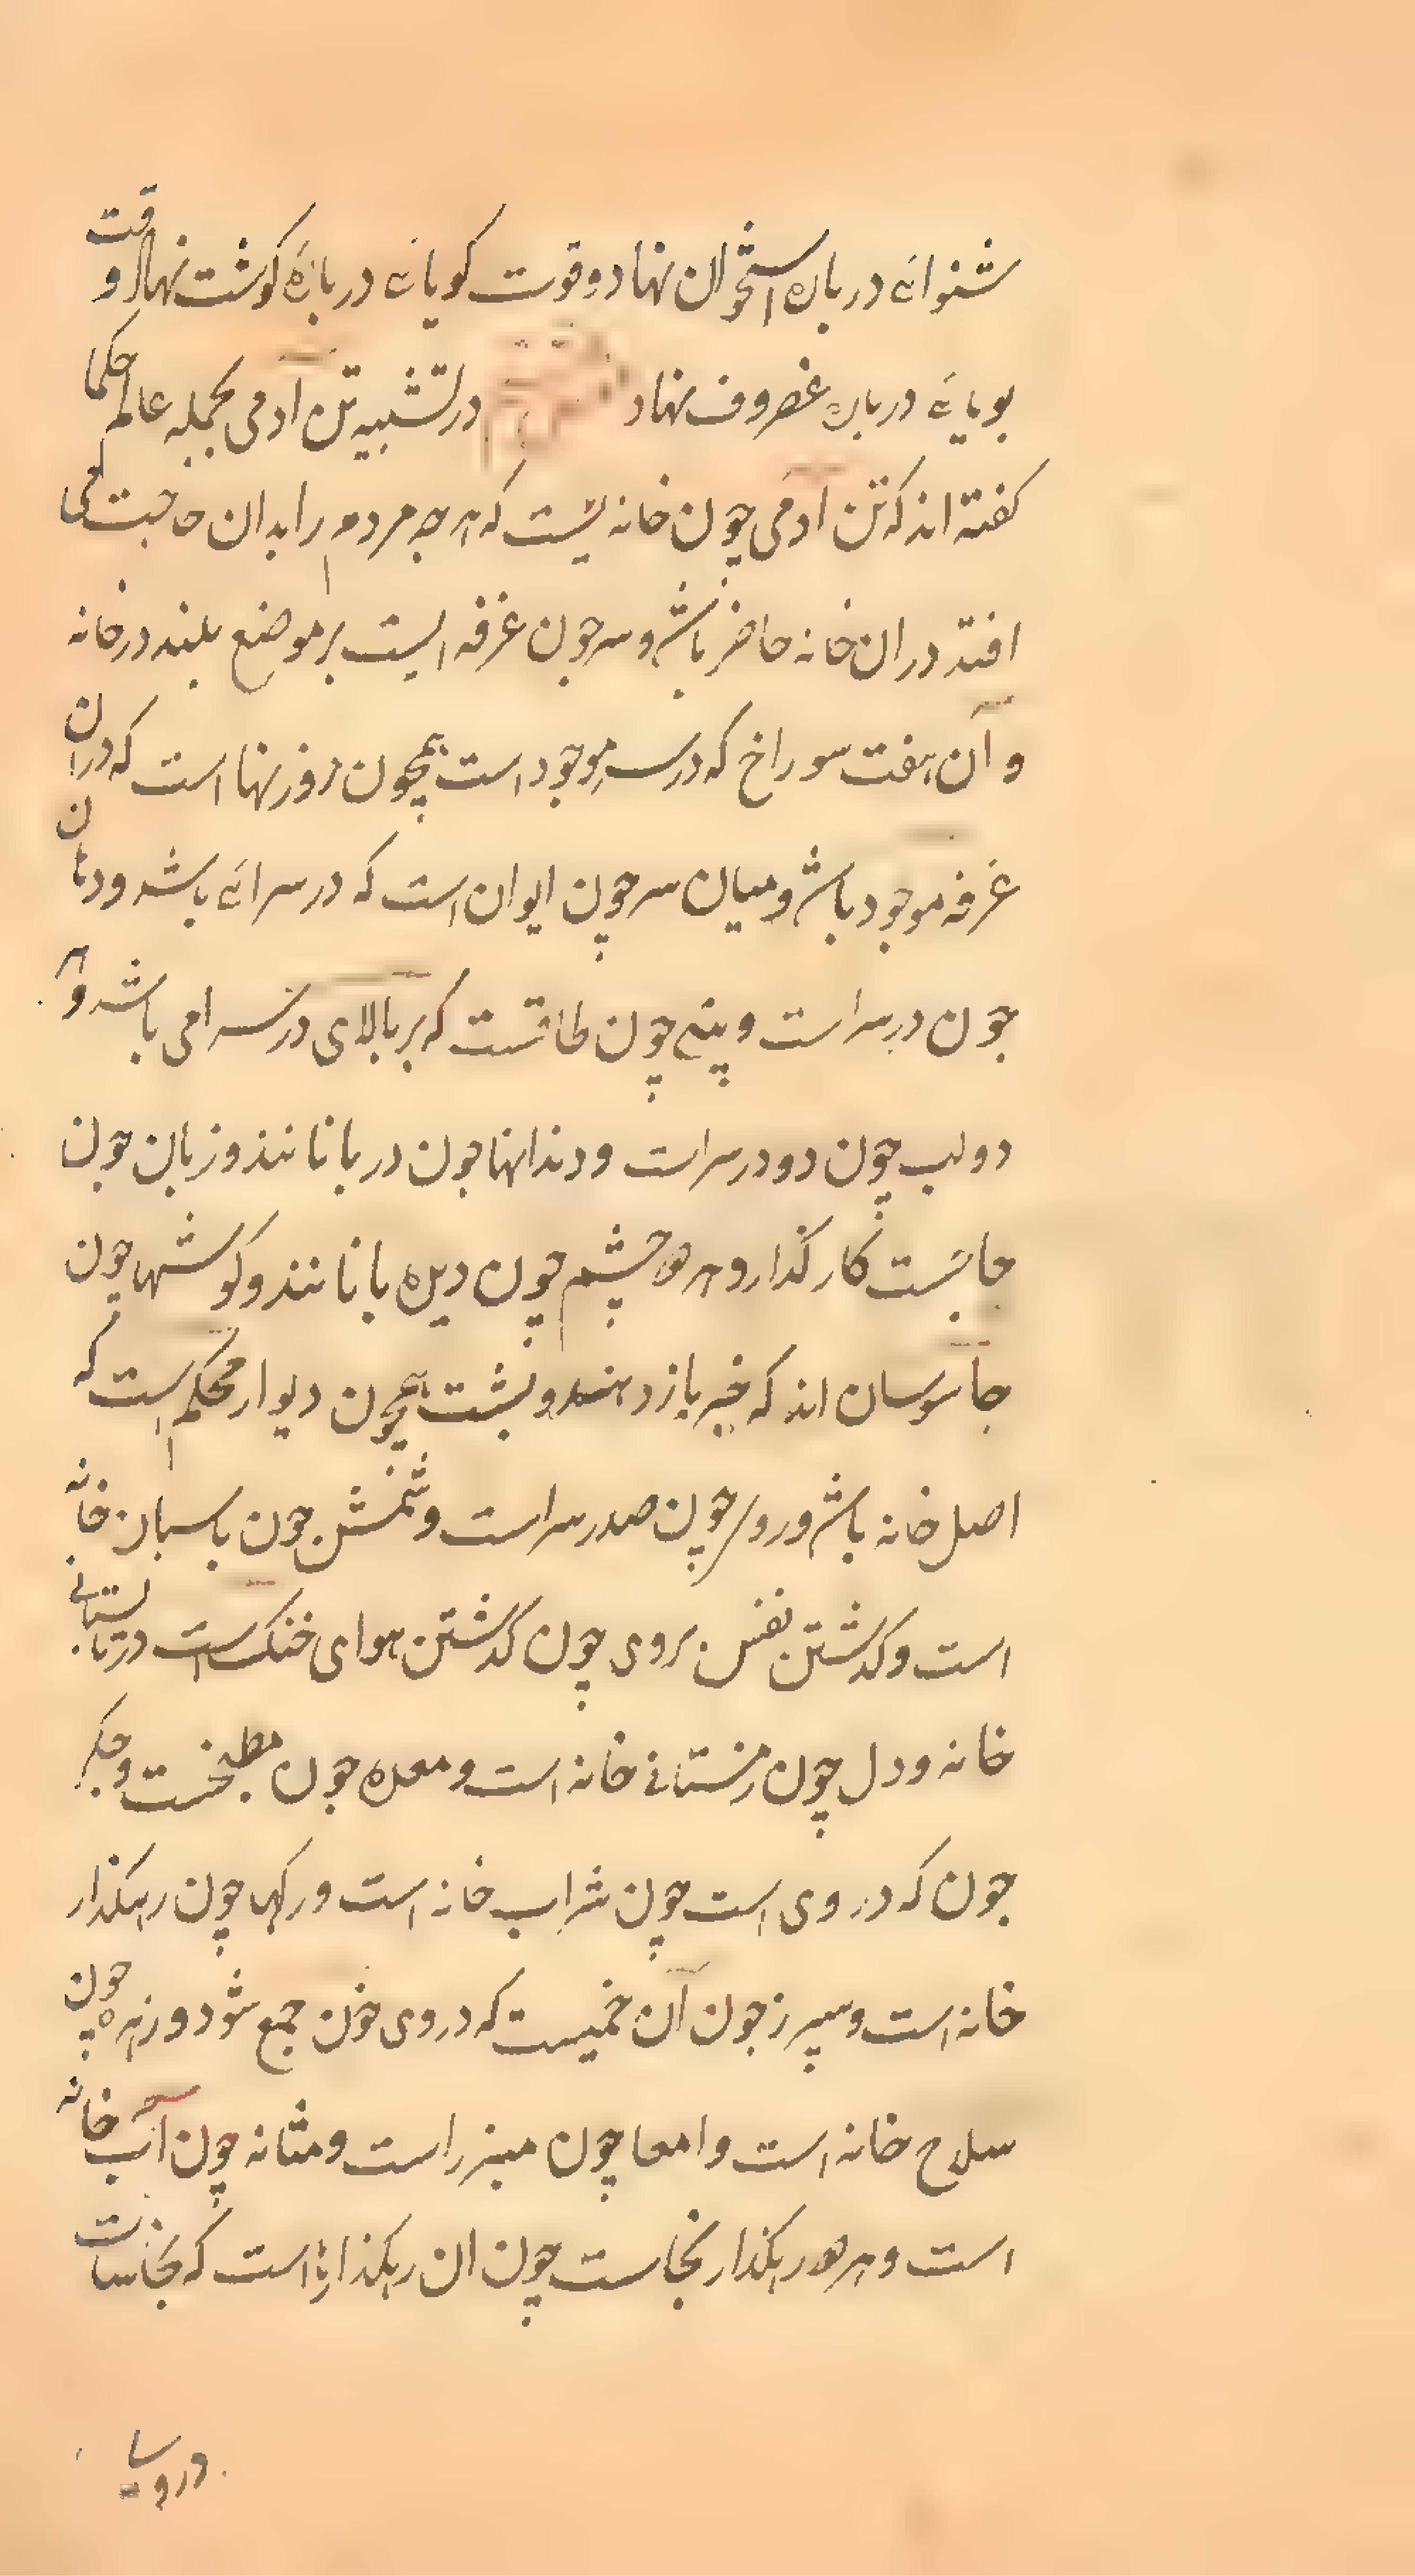 شنوائے در بارہ استخوان نهاد و قوت کویائے در بارۂ کوشت نهاد و قوت
بویائے در بارہ غضروف نهاد در تشبیه تن ادمی بجمله عالم حکما
کفته اند که تن آدمی چون خانه یست که هر چه مردم را بدان حاجت می
افتد در ان خانه حاضر باشد و سر چون غرفه ایست بر موضع بلند در خانه
و آن هفت سوراخ که در سر موجود است همچون روزنها است که در ان
غرفه موجود باشد و میان سر چون ایوان است که در سرائے باشد و دهان
جون در سراست و بینے چون طاقست که بر بالای در سرا می باشد و هر
دو لب چون دو در سراست و دندانها جون دربانانند و زبان جون
حاجبست کار کذار و هر دو چشم چون دیده بانانند و کوشها چون
جاسوسان اند که خبر باز دهند و پشت همچون دیوار محکم است که
اصل خانه باشد و روی چون صدر سراست و شش جون باسبان خانه
است و کذشتن نفس بروی چون کذشتن هوای خنک است در تابستانے
خانه و دل چون زمستانے خانه است و معده جون مطبخست و جکر
جون که در وی است چون شراب خانه است و رکها چون رهکذار
خانه است و سپرز جون آن خمیست که در وی خون جمع شود و زهره چون
سلاح خانه است و امعا چون مبرز است و مثانه چون آب خانه
است و هر دو رهکذار نجاست چون ان رهکذارها است که نجاسات
در وسا